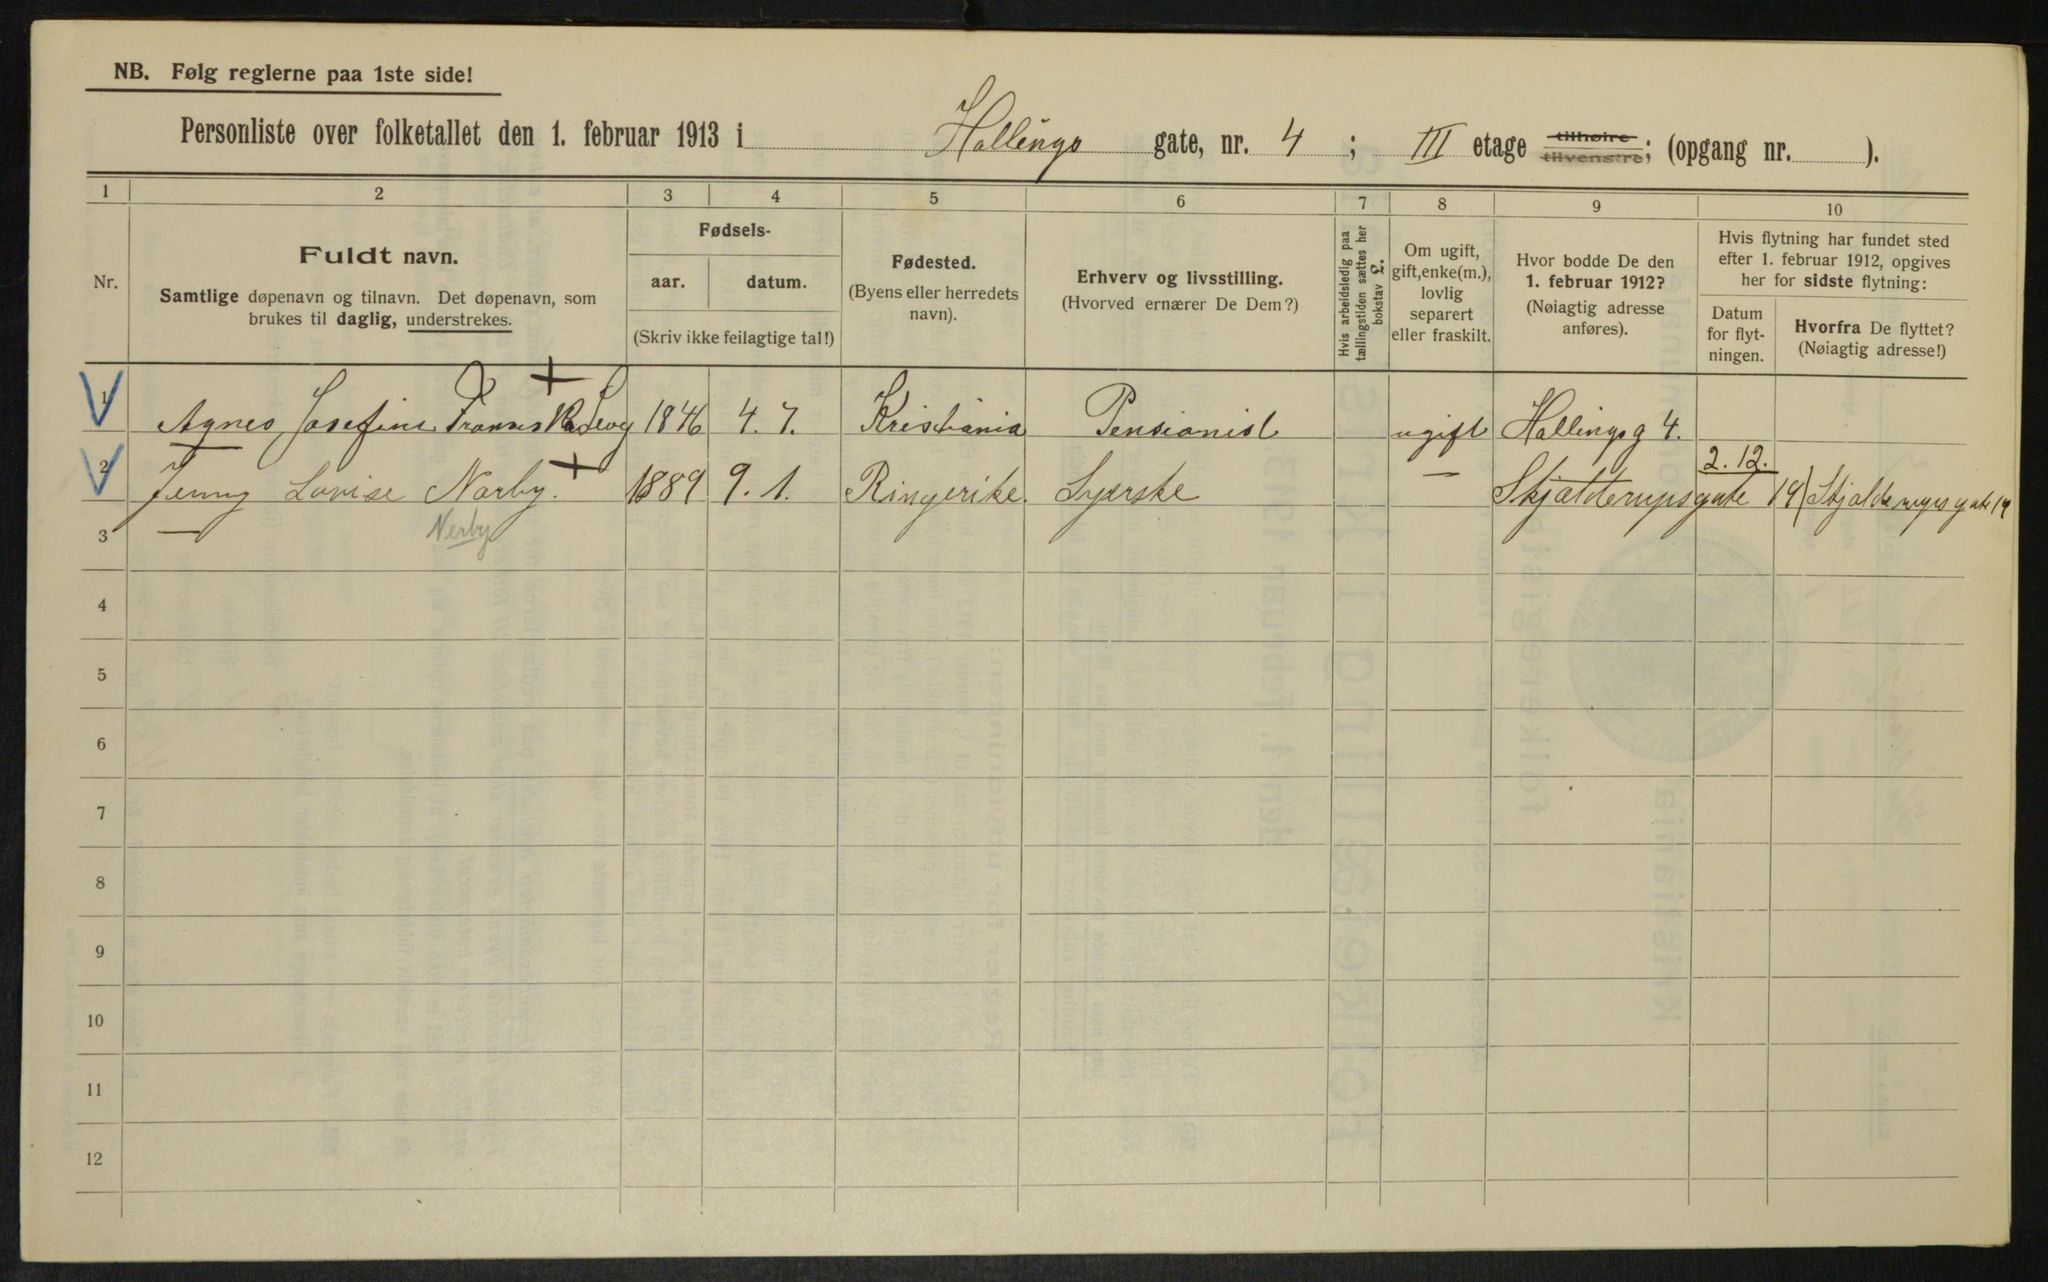 NB. Følg reglerne paa 1ste side!
Personliste over folketallet den 1. februar 1913 i Hallings gate, nr. 4 ; III etage tilhøire tilvenstre; (opgang nr. ).
1 2 3 4 5 6 7 8 9 10
Nr.
Fuldt navn.
Samtlige døpenavn og tilnavn. Det døpenavn, som
brukes til daglig, understrekes.
Fødsels-
aar. datum.
(Skriv ikke feilagtige tal!)
Fødested.
(Byens eller herredets
navn).
Erhverv og livsstilling.
(Hvorved ernærer De Dem?)
Hvis arbeidsledig paa
tællingstiden sættes her
bokstav L.
Om ugift,
gift, enke(m.),
lovlig
separert
eller fraskilt.
Hvor bodde De den
1. februar 1912?
(Nøiagtig adresse
anføres).
Hvis flytning har fundet sted
efter 1. februar 1912, opgives
her for sidste flytning:
Datum
for flyt-
ningen.
Hvorfra De flyttet?
(Nøiagtig adresse!)
1 Agnes Josefine 1846 4. 7. Kristiania Pensionist ugift Hallingsg 4.
2 Jenny Lovise Narby. 1889 9. 1. Ringerike. Syerske — Skjælderupsgate 19 2.12. Skjælderupsgate 19
Nerby
3
4
5
6
7
8
9
10
11
12